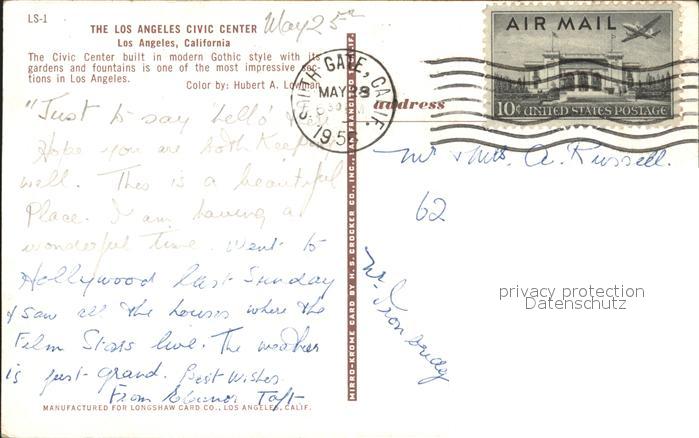 LS-1
THE LOS ANGELES CIVIC CENTER
Los Angeles, California
The Civic Center built in modern Gothic style with its
gardens and fountains is one of the most impressive sec-
tions in Los Angeles.
Color by: Hubert A. Lowman
May 25th
"Just to say 'hello' &
Hope you are both Keeping
well. This is a beautiful
Place. I am having a
wonderful time. Went to
Hollywood last Sunday
& saw all the houses where the
Film Stars live. The weather
is just grand. Best Wishes.
From Eleanor Taft
MANUFACTURED FOR LONGSHAW CARD CO., LOS ANGELES, CALIF.
MIRRO-KROME CARD BY H. S. CROCKER CO., INC., SAN FRANCISCO
SOUTH GATE, CALIF.
MAY 28
195
AIR MAIL
10¢ UNITED STATES POSTAGE
address
Mr & Mrs. A. Russell.
62
privacy protection
Datenschutz